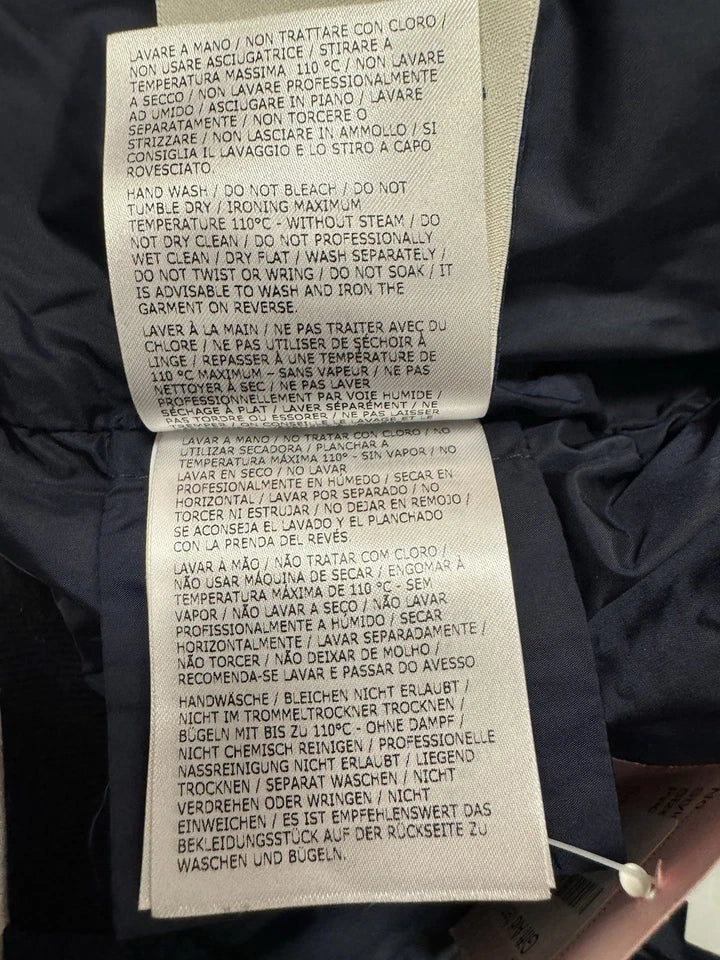 LAVARE A MANO / NON TRATTARE CON CLORO /
NON USARE ASCIUGATRICE / STIRARE A
TEMPERATURA MASSIMA 110 °C / NON LAVARE
A SECCO / NON LAVARE PROFESSIONALMENTE
AD UMIDO / ASCIUGARE IN PIANO / LAVARE
SEPARATAMENTE / NON TORCERE O
STRIZZARE / NON LASCIARE IN AMMOLLO / SI
CONSIGLIA IL LAVAGGIO E LO STIRO A CAPO
ROVESCIATO.
HAND WASH / DO NOT BLEACH / DO NOT
TUMBLE DRY / IRONING MAXIMUM
TEMPERATURE 110°C - WITHOUT STEAM / DO
NOT DRY CLEAN / DO NOT PROFESSIONALLY
WET CLEAN / DRY FLAT / WASH SEPARATELY /
DO NOT TWIST OR WRING / DO NOT SOAK / IT
IS ADVISABLE TO WASH AND IRON THE
GARMENT ON REVERSE.
LAVER À LA MAIN / NE PAS TRAITER AVEC DU
CHLORE / NE PAS UTILISER DE SÉCHOIR À
LINGE / REPASSER À UNE TEMPÉRATURE DE
110 °C MAXIMUM - SANS VAPEUR / NE PAS
NETTOYER À SEC / NE PAS LAVER
PROFESSIONNELLEMENT PAR VOIE HUMIDE /
SÉCHAGE À PLAT / LAVER SÉPARÉMENT / NE
PAS TORDRE OU ESSORER / NE PAS LAISSER
TREMPER / ON CONSEILLE LE LAVAGE ET LE
LAVAR A MANO / NO TRATAR CON CLORO / NO
UTILIZAR SECADORA / PLANCHAR A
TEMPERATURA MÁXIMA 110° - SIN VAPOR / NO
LAVAR EN SECO / NO LAVAR
PROFESIONALMENTE EN HÚMEDO / SECAR EN
HORIZONTAL / LAVAR POR SEPARADO / NO
TORCER NI ESTRUJAR / NO DEJAR EN REMOJO /
SE ACONSEJA EL LAVADO Y EL PLANCHADO
CON LA PRENDA DEL REVÉS.
LAVAR À MÃO / NÃO TRATAR COM CLORO /
NÃO USAR MÁQUINA DE SECAR / ENGOMAR À
TEMPERATURA MÁXIMA DE 110 °C - SEM
VAPOR / NÃO LAVAR A SECO / NÃO LAVAR
PROFISSIONALMENTE A HÚMIDO / SECAR
HORIZONTALMENTE / LAVAR SEPARADAMENTE /
NÃO TORCER / NÃO DEIXAR DE MOLHO /
RECOMENDA-SE LAVAR E PASSAR DO AVESSO
HANDWÄSCHE / BLEICHEN NICHT ERLAUBT /
NICHT IM TROMMELTROCKNER TROCKNEN /
BÜGELN MIT BIS ZU 110°C - OHNE DAMPF /
NICHT CHEMISCH REINIGEN / PROFESSIONELLE
NASSREINIGUNG NICHT ERLAUBT / LIEGEND
TROCKNEN / SEPARAT WASCHEN / NICHT
VERDREHEN ODER WRINGEN / NICHT
EINWEICHEN / ES IST EMPFEHLENSWERT DAS
BEKLEIDUNGSSTÜCK AUF DER RÜCKSEITE ZU
WASCHEN UND BÜGELN.